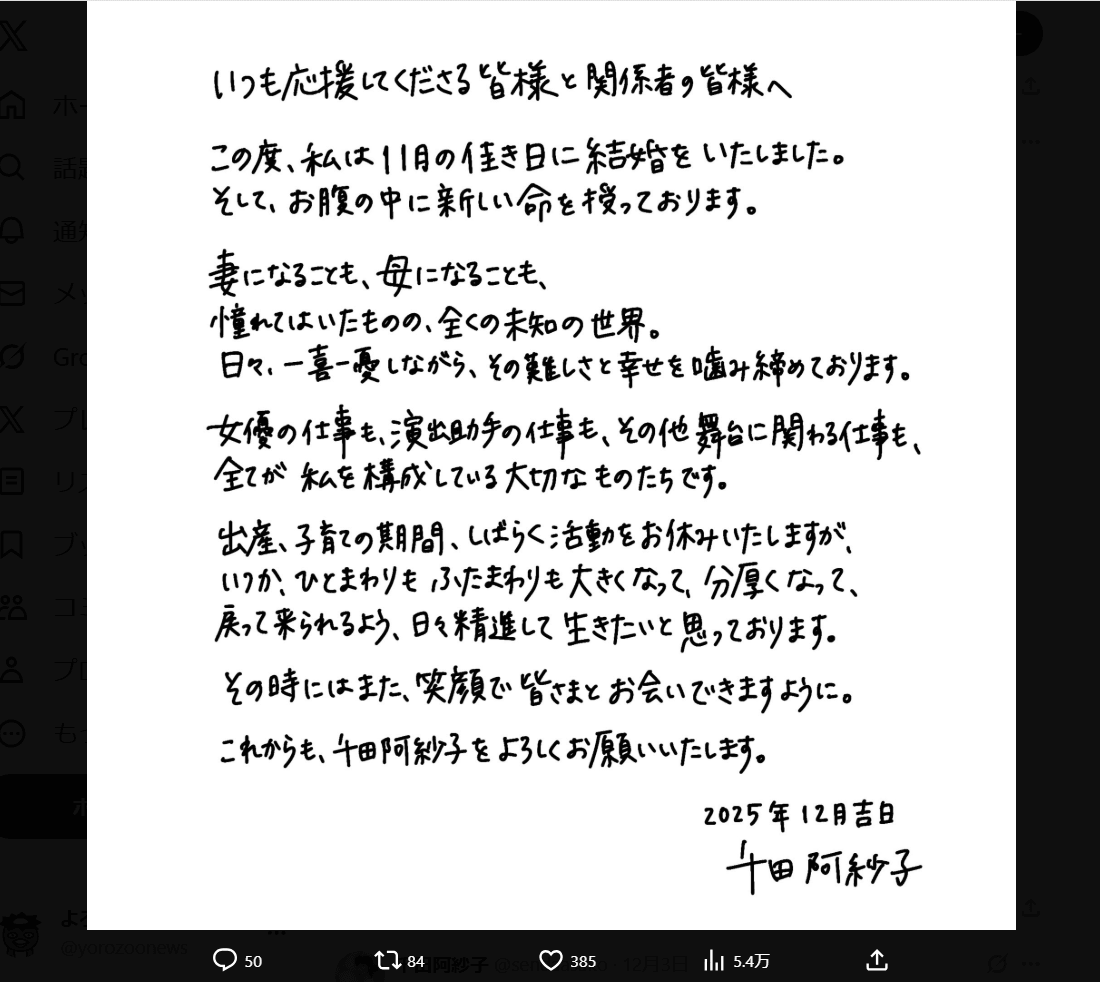 いつも応援してくださる皆様と関係者の皆様へ
この度、私は11月の佳き日に結婚をいたしました。
そして、お腹の中に新しい命を授っております。
妻になることも、母になることも、
憧れてはいたものの、全くの未知の世界。
日々、一喜一憂しながら、その難しさと幸せを噛み締めております。
女優の仕事も、演出助手の仕事も、その他舞台に関わる仕事も、
全てが私を構成している大切なものたちです。
出産、子育ての期間、しばらく活動をお休みいたしますが、
いつか、ひとまわりもふたまわりも大きくなって、分厚くなって、
戻って来られるよう、日々精進して生きたいと思っております。
その時にはまた、笑顔で皆さまとお会いできますように。
これからも、千田阿紗子をよろしくお願いいたします。
2025年12月吉日
千田阿紗子
ホー
話題
通知
メッ
Gro
プレ
リス
ブッ
コミ
プロ
もっ
ポ
よろ
@yorozoonews
千田阿紗子 @sen · 12月3日
50
84
385
5.4万